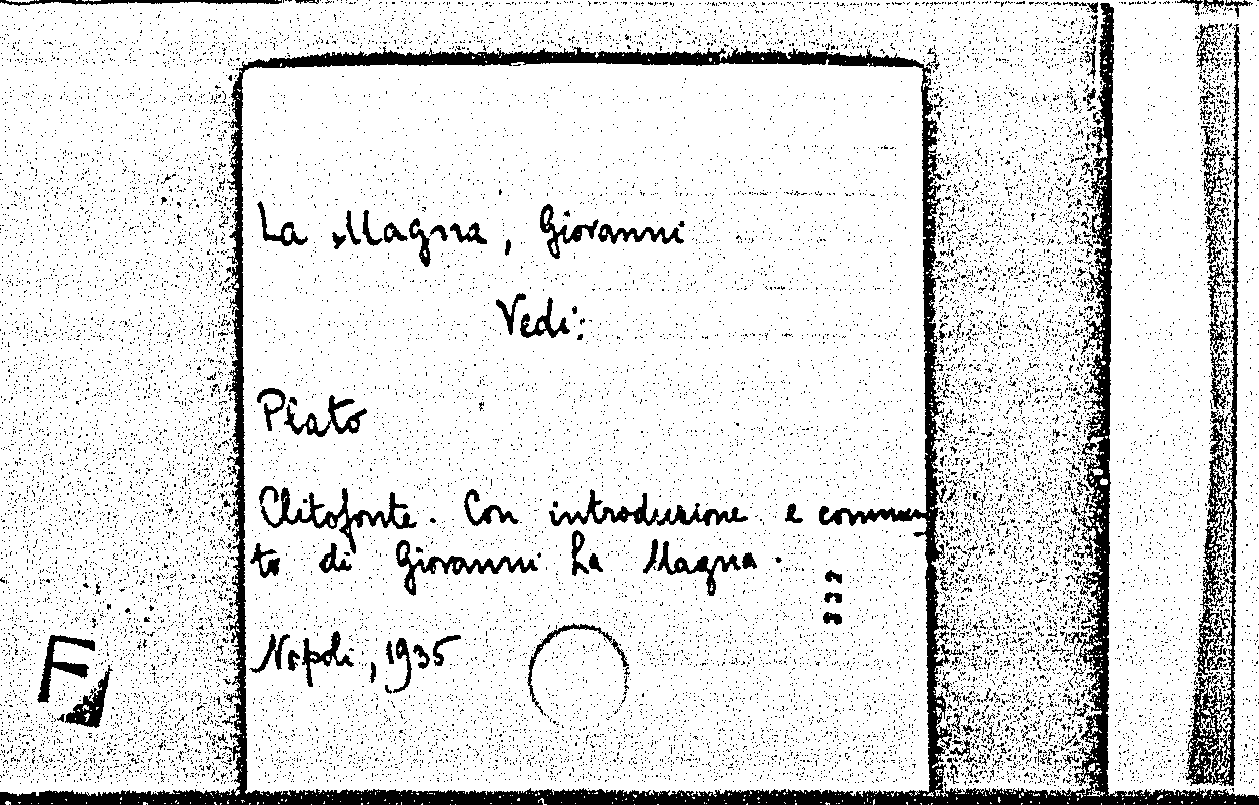 La Magna, Giovanni
Vedi:
Plato
Clitofonte. Con introduzione e commen-
to di Giovanni La Magna.
332
Napoli, 1935
F